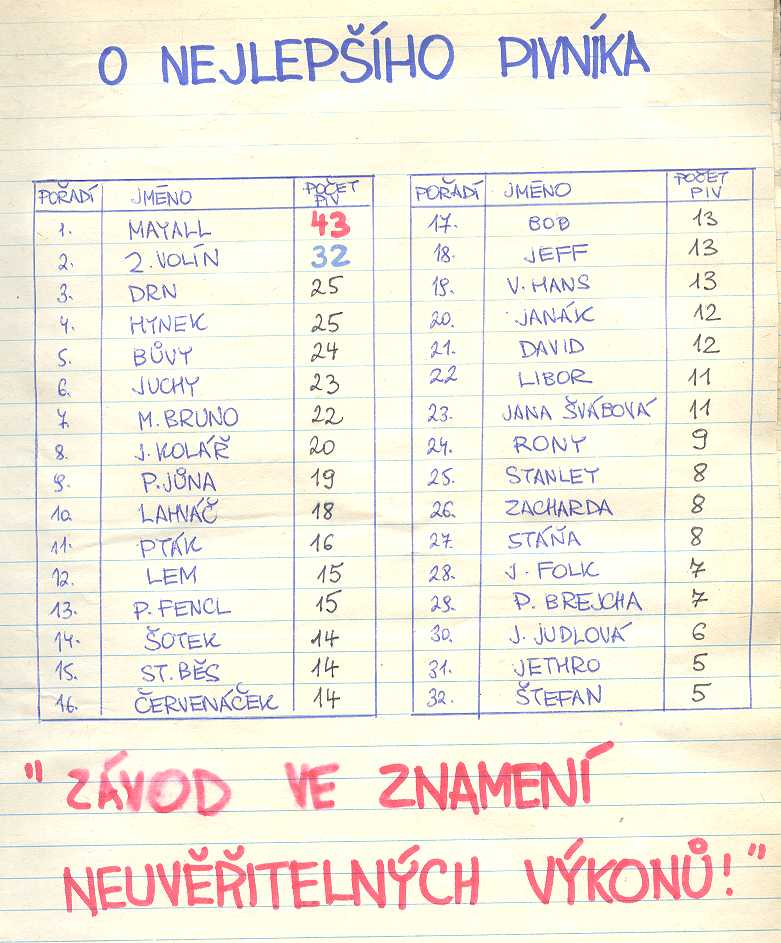 O NEJLEPŠÍHO PIVNÍKA
POŘADÍ JMÉNO POČET PIV
1. MAYALL 43
2. 2. VOLÍN 32
3. DRN 25
4. HYNEK 25
5. BŮVY 24
6. JUCHY 23
7. M. BRUNO 22
8. J. KOLÁŘ 20
9. P. JŮNA 19
10. LAHVÁČ 18
11. PTÁK 16
12. LEM 15
13. P. FENCL 15
14. ŠOTEK 14
15. ST. BĚS 14
16. ČERVENÁČEK 14
POŘADÍ JMÉNO POČET PIV
17. BOB 13
18. JEFF 13
19. V. HANS 13
20. JANÁK 12
21. DAVID 12
22 LIBOR 11
23. JANA ŠVÁBOVÁ 11
24. RONY 9
25. STANLEY 8
26. ZACHARDA 8
27. STÁŇA 8
28. J. FOLK 7
29. P. BREJCHA 7
30. J. JUDLOVÁ 6
31. JETHRO 5
32. ŠTEFAN 5
" ZÁVOD VE ZNAMENÍ
NEUVĚŘITELNÝCH VÝKONŮ! "